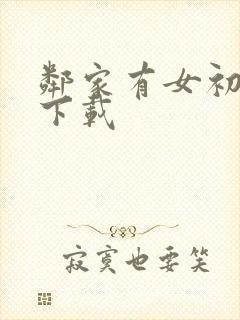 鄰家有女初
下載
寂寞也要笑